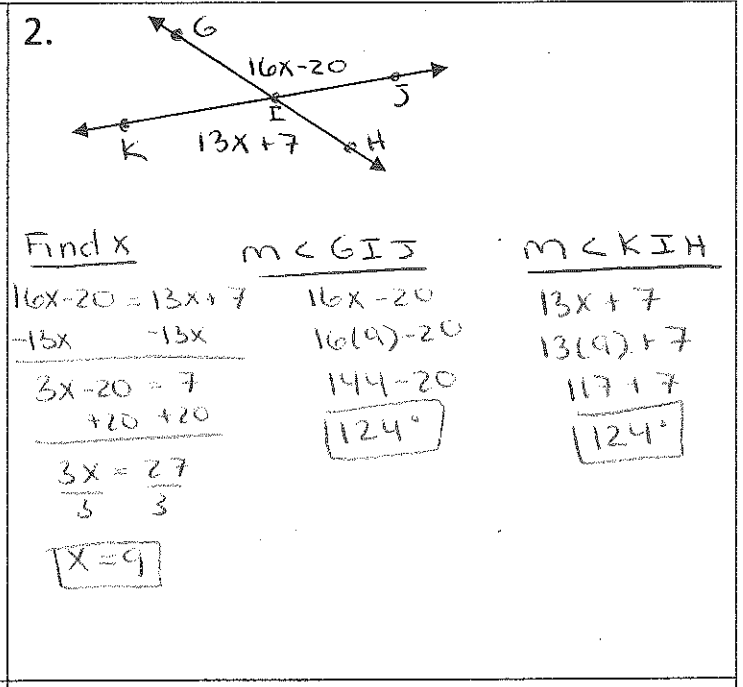 2.
G
16x-20
J
I
K
13x+7
H
Find x
16x-20 = 13x+7
-13x -13x
3x-20 = 7
+20 +20
3x = 27
3 3
x = 9
m < GIJ
16x-20
16(9)-20
144-20
124°
m < KIH
13x+7
13(9)+7
117+7
124°